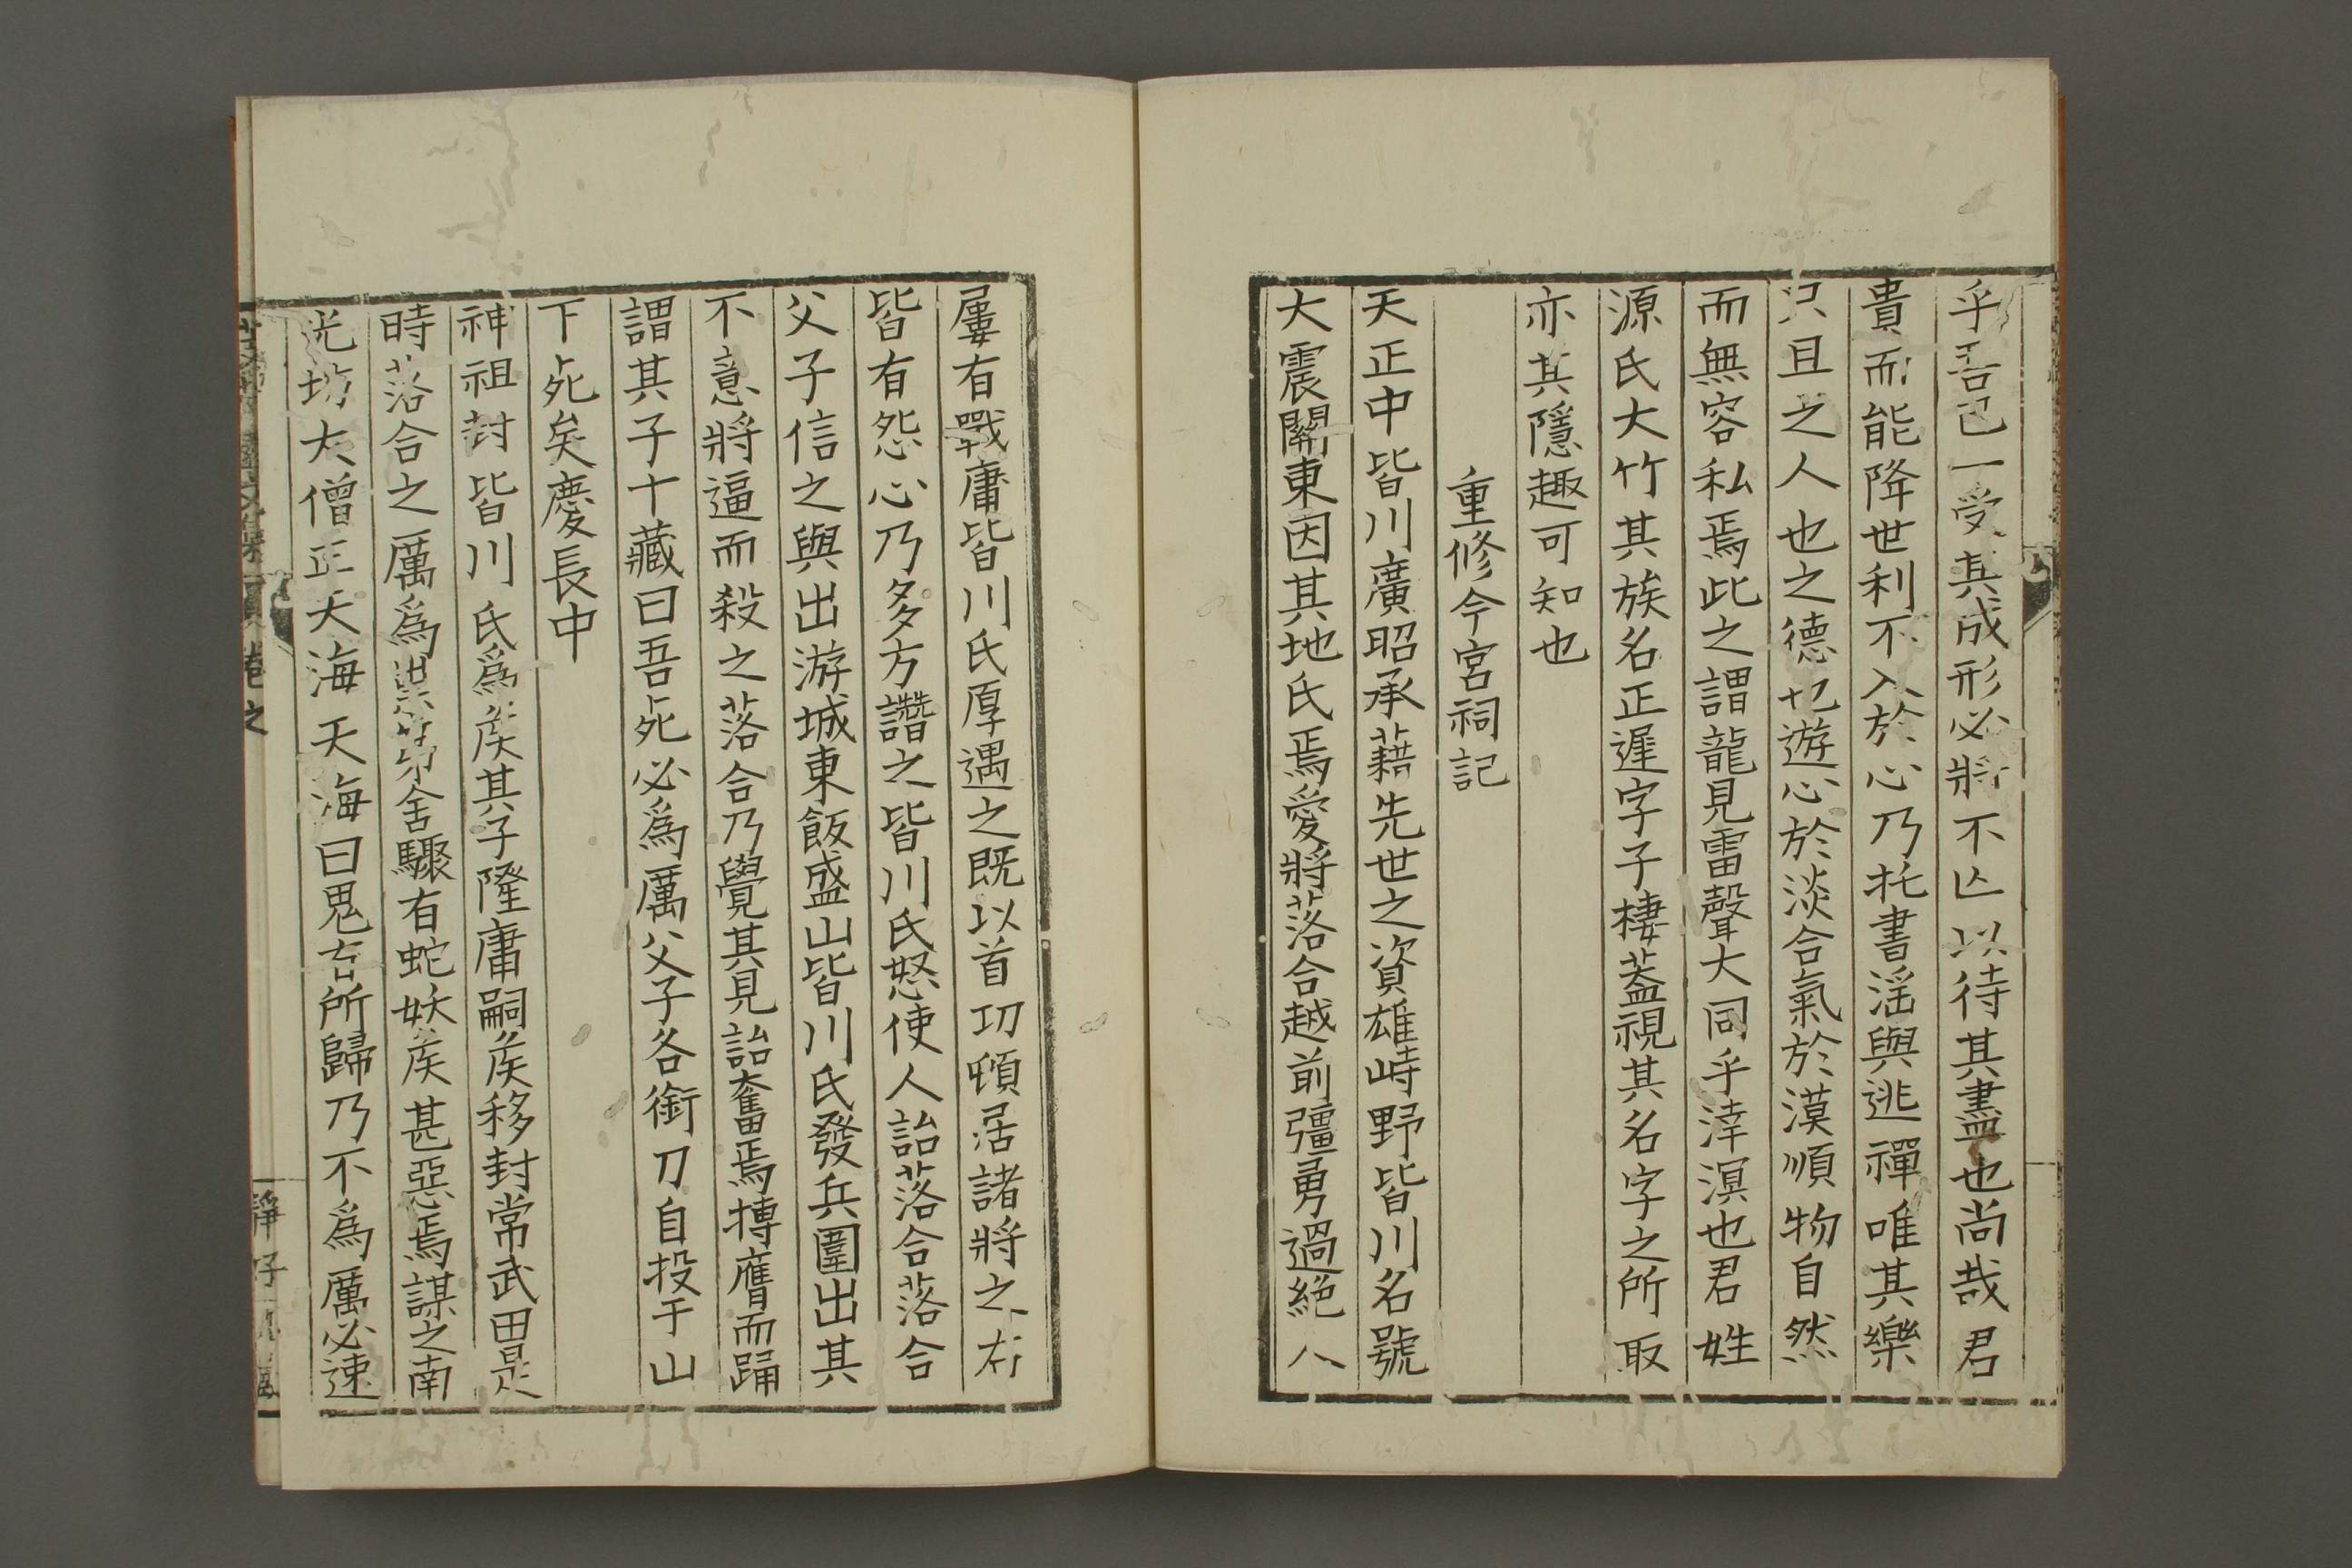 乎吾已一受其成形必將不亾以待其盡也尚哉君
貴而能降世利不入於心乃托書淫與逃禪唯其樂
只且之人也之德也遊心於淡合氣於漠順物自然
而無容私焉此之謂龍見雷聲大同乎涬溟也君姓
源氏大竹其族名正遲字子棲蓋視其名字之所取
亦其隱趣可知也
重修今宮祠記
天正中皆川廣昭承藉先世之資雄峙野皆川名號
大震關東因其地氏焉愛將落合越前彊勇過絕人
屢有戰庸皆川氏厚遇之既以首功頓居諸將之右
皆有怨心乃多方讚之皆川氏怒使人詒落合落合
父子信之與出游城東飯盛山皆川氏發兵圍出其
不意將逼而殺之落合乃覺其見詒奮焉搏膺而踊
謂其子十藏曰吾死必爲厲父子各銜刀自投于山
下死矣慶長中
神祖封皆川氏爲矦其子隆庸嗣矦移封常武田是
時落合之厲爲祟第舍驟有蛇妖矦甚惡焉謀之南
光坊大僧正天海天海曰鬼有所歸乃不爲厲必速
卷之
靜好